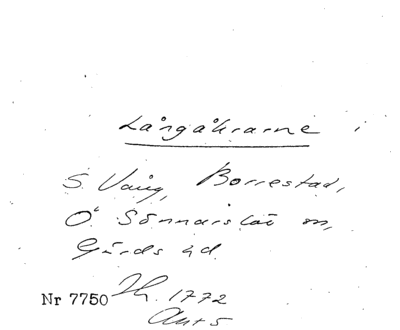 Långåkrarne i
S. Vång, Borrestad,
Ö Sönnarslöv sn,
Gärds hd.
Nr 7750 Th. 1772
Akt 5